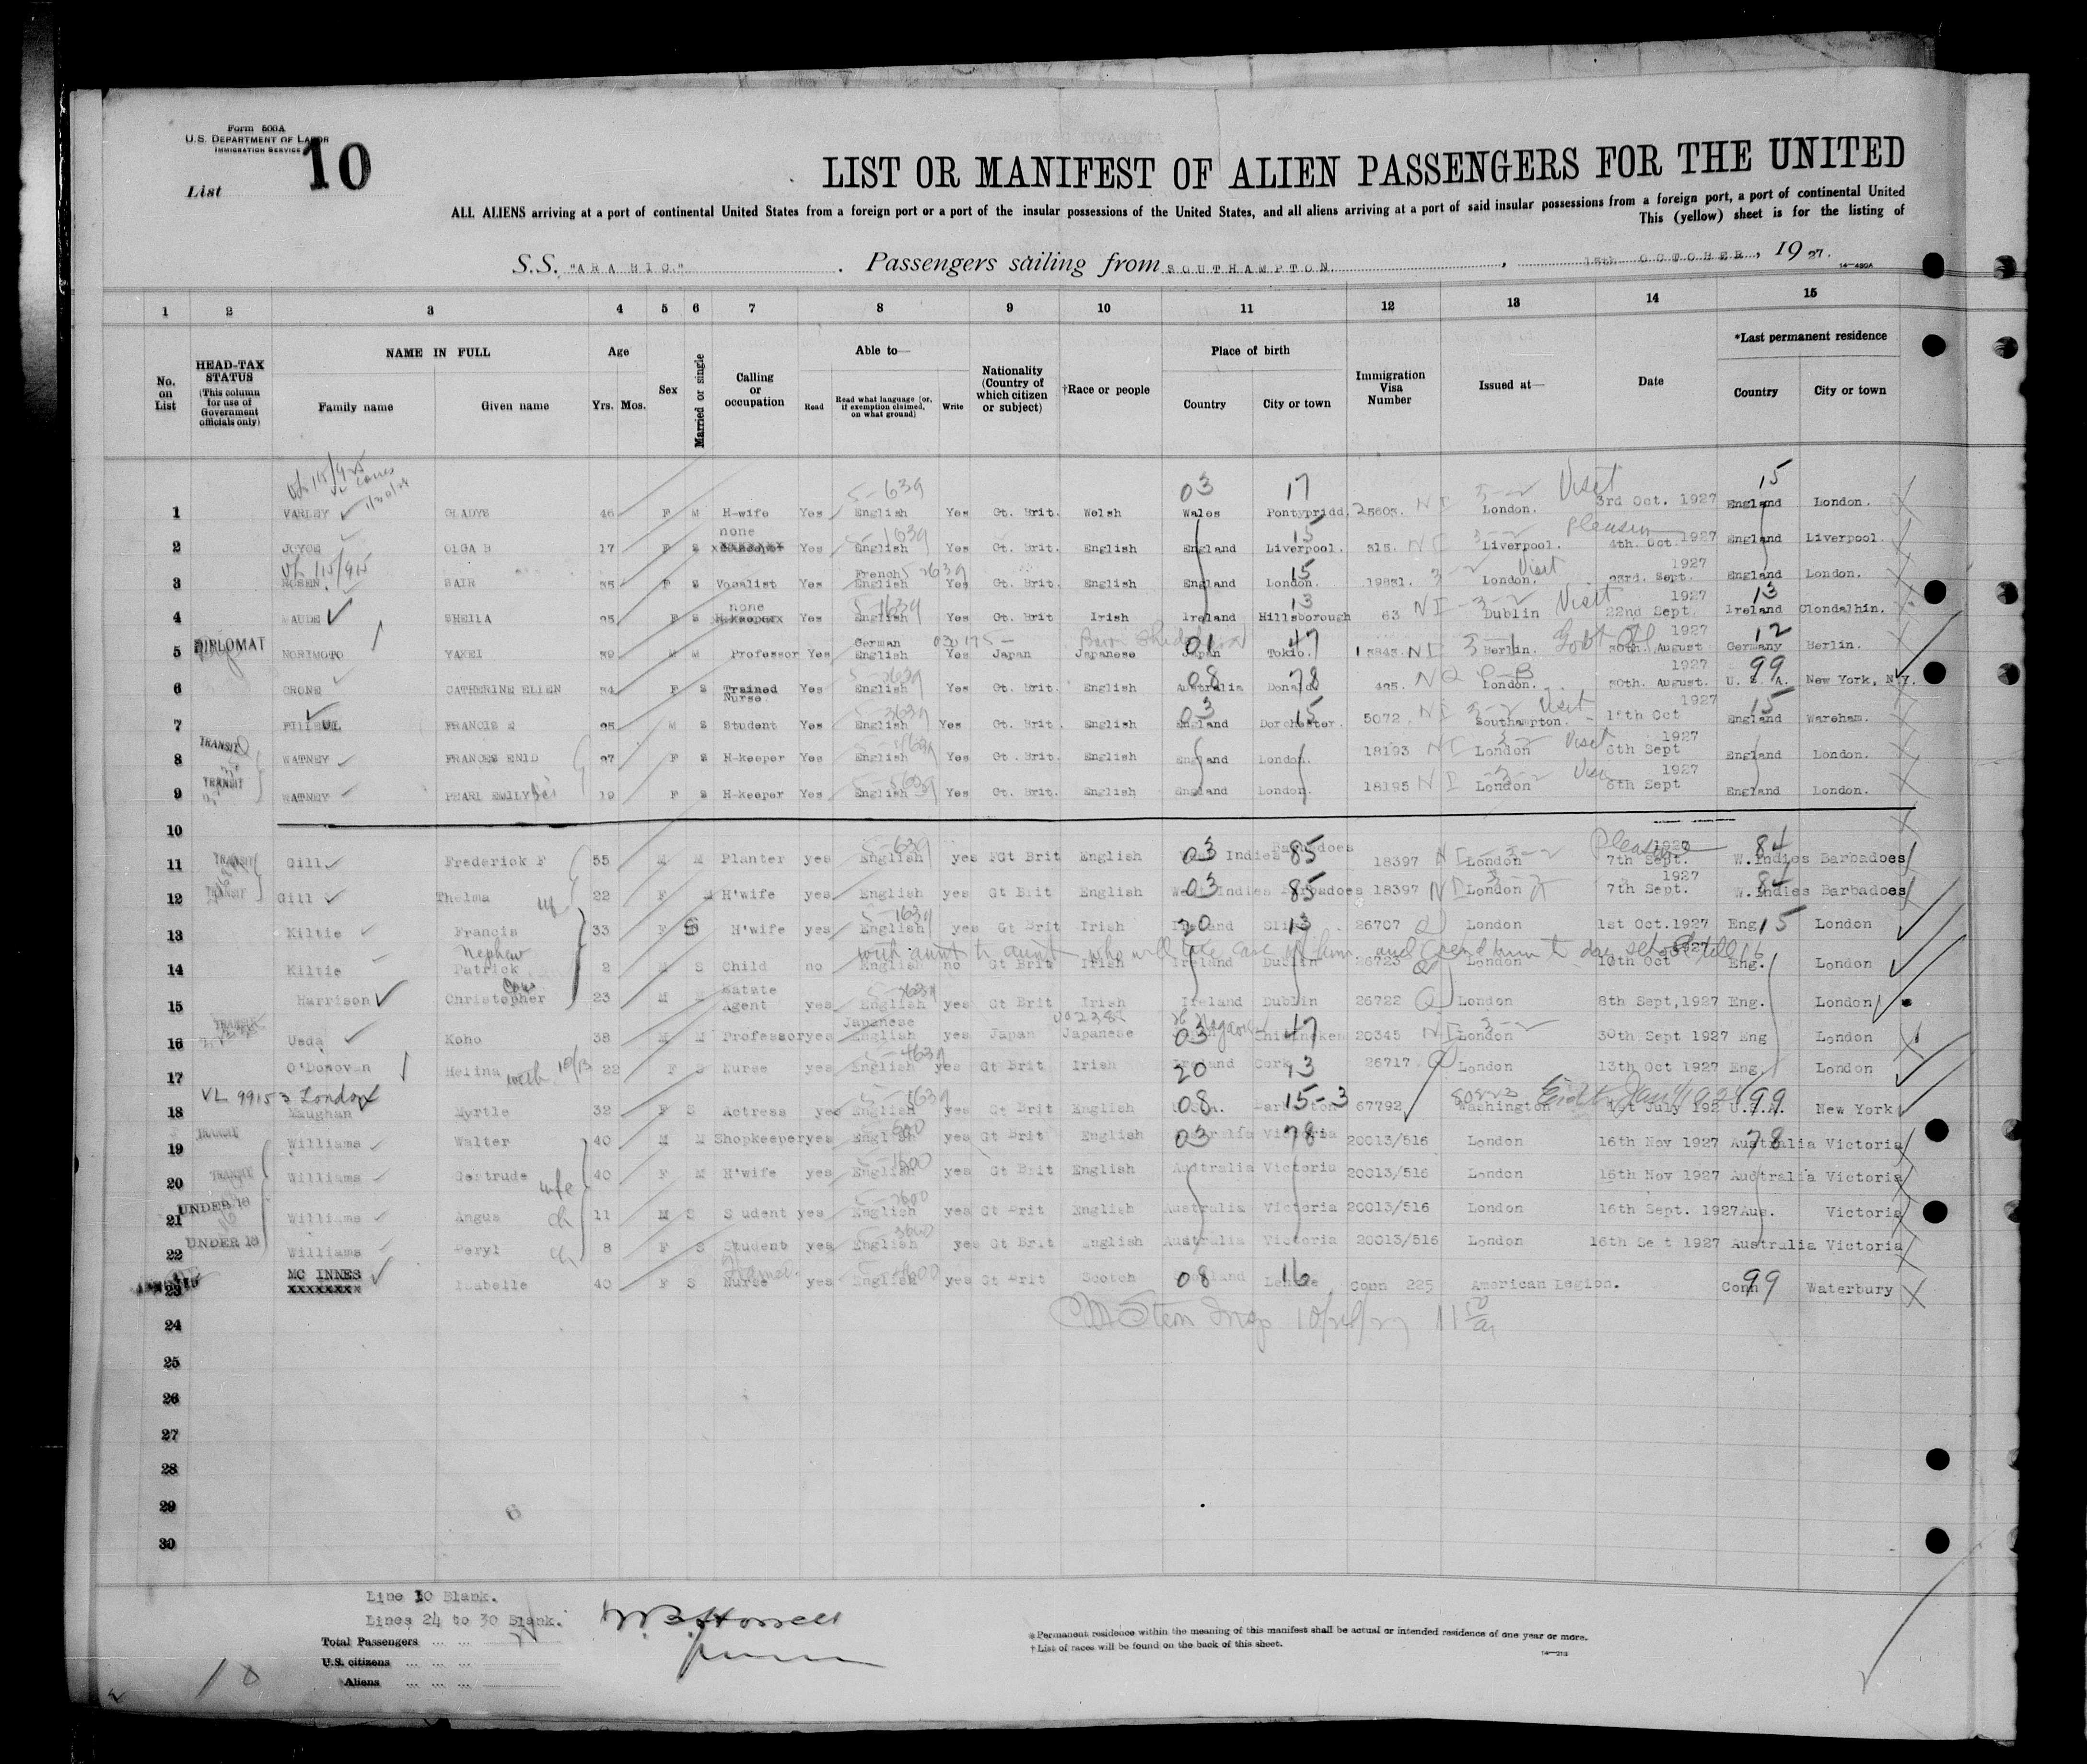 Form 500A
U.S. DEPARTMENT OF LABOR
IMMIGRATION SERVICE
List 10
LIST OR MANIFEST OF ALIEN PASSENGERS FOR THE UNITED
ALL ALIENS arriving at a port of continental United States from a foreign port or a port of the insular possessions of the United States, and all aliens arriving at a port of said insular possessions from a foreign port, a port of continental United
This (yellow) sheet is for the listing of
S.S. "ARABIC" . Passengers sailing from SOUTHAMPTON , 15th OCTOBER , 1927.
14-430A
1 2 3 4 5 6 7 8 9 10 11 12 13 14 15
No. on List
HEAD-TAX STATUS (This column for use of Government officials only)
NAME IN FULL Family name Given name
Age Yrs. Mos.
Sex
Married or single
Calling or occupation
Able to— Read Read what language (or, if exemption claimed, on what ground) Write
Nationality (Country of which citizen or subject)
†Race or people
Place of birth Country City or town
Immigration Visa Number
Issued at—
Date
*Last permanent residence Country City or town
1 VARLEY GLADYS 46 F M H-wife Yes English Yes Gt. Brit. Welsh Wales Pontypridd. 25605. N I London. Visit 3rd Oct. 1927 England London.
2 JOYCE OLGA B 17 F S none Yes English Yes Gt. Brit. English England Liverpool. 515. N I Liverpool. 4th. Oct 1927 England Liverpool.
3 ROSEN SAIR 35 F S Vocalist Yes French English Yes Gt. Brit. English England London. 19881. London. Visit 23rd. Sept. 1927 England London.
4 SHEILA 25 F S none H.keeper Yes English Yes Gt. Brit Irish Ireland Hillsborough 63 N I Dublin Visit 22nd Sept. 1927 Ireland Clondalhin.
5 DIPLOMAT NORIMOTO YAKEI 39 M M Professor Yes German English Yes Japan Japanese Japan Tokio. N I Berlin. 30th. August 1927 Germany Berlin.
6 CRONE CATHERINE ELLEN 34 F S Trained Nurse Yes English Yes Gt. Brit. English Australia Donald 495. N Q London. 30th. August. 1927 U. S. A. New York, N.Y.
7 FRANCIS 25 M S Student Yes English Yes Gt. Brit. English England Dorchester. 5072. N I Southampton. Visit 1927 England Wareham.
8 TRANSIT WATNEY FRANCES ENID 27 F S H-keeper Yes English Yes Gt. Brit. English England London. 18193 N I London Visit 6th Sept 1927 England London.
9 TRANSIT WATNEY PEARL EMILY 19 F S H-keeper Yes English Yes Gt. Brit. English England London. 18195 N I London 6th Sept 1927 England London.
10
11 TRANSIT Gill Frederick F 55 M M Planter yes English yes Gt Brit English Indies Barbadoes 18397 N I London Pleasure 7th Sept. 1927 W. Indies Barbadoes
12 TRANSIT Gill Thelma 22 F M H'wife yes English yes Gt Brit English West Indies Barbadoes 18397 N I London 7th Sept. 1927 W. Indies Barbadoes
13 Kiltie Francis 33 F S H'wife yes English yes Gt Brit Irish Ireland 26707 Q London 1st Oct.1927 Eng London
14 Kiltie Nephew Patrick 2 M S Child no English no Gt Brit Irish Ireland Dublin 26723 Q London 10th Oct Eng. London
15 Harrison Christopher 23 M Estate Agent yes English yes Gt Brit Irish Ireland Dublin 26722 Q London 8th Sept,1927 Eng. London
16 TRANSIT Ueda Koho 38 M M Professor yes Japanese English yes Japan Japanese 20345 N I London 30th Sept 1927 Eng London
17 O'Donovan Helina 22 F S Nurse yes English yes Gt Brit Irish Ireland Cork 26717 Q London 13th Oct 1927 Eng. London
VL 99153 London
18 Maughan Myrtle 32 F S Actress yes English yes Gt Brit English 67792 Washington July 192 U.S.A. New York
19 TRANSIT Williams Walter 40 M M Shopkeeper yes English yes Gt Brit English Australia Victoria 20013/516 London 16th Nov 1927 Australia Victoria
20 TRANSIT Williams Gertrude wife 40 F M H'wife yes English yes Gt Brit English Australia Victoria 20013/516 London 16th Nov 1927 Australia Victoria
21 UNDER 16 Williams Angus ch 11 M S Student yes English yes Gt Brit English Australia Victoria 20013/516 London 16th Sept. 1927 Aus. Victoria
22 UNDER 16 Williams Beryl ch 8 F S Student yes English yes Gt Brit English Australia Victoria 20013/516 London 16th Sept 1927 Australia Victoria
23 MC INNES XXXXXXXX Isabelle 40 F S Nurse yes English yes Gt Brit Scotch Conn 225 American Legion. Conn Waterbury
24
25
26
27
28
29
30
Line 10 Blank.
Lines 24 to 30 Blank.
Total Passengers ... ...
U.S. citizens ... ... ...
Aliens ... ... ...
10
* Permanent residence within the meaning of this manifest shall be actual or intended residence of one year or more.
† List of races will be found on the back of this sheet.